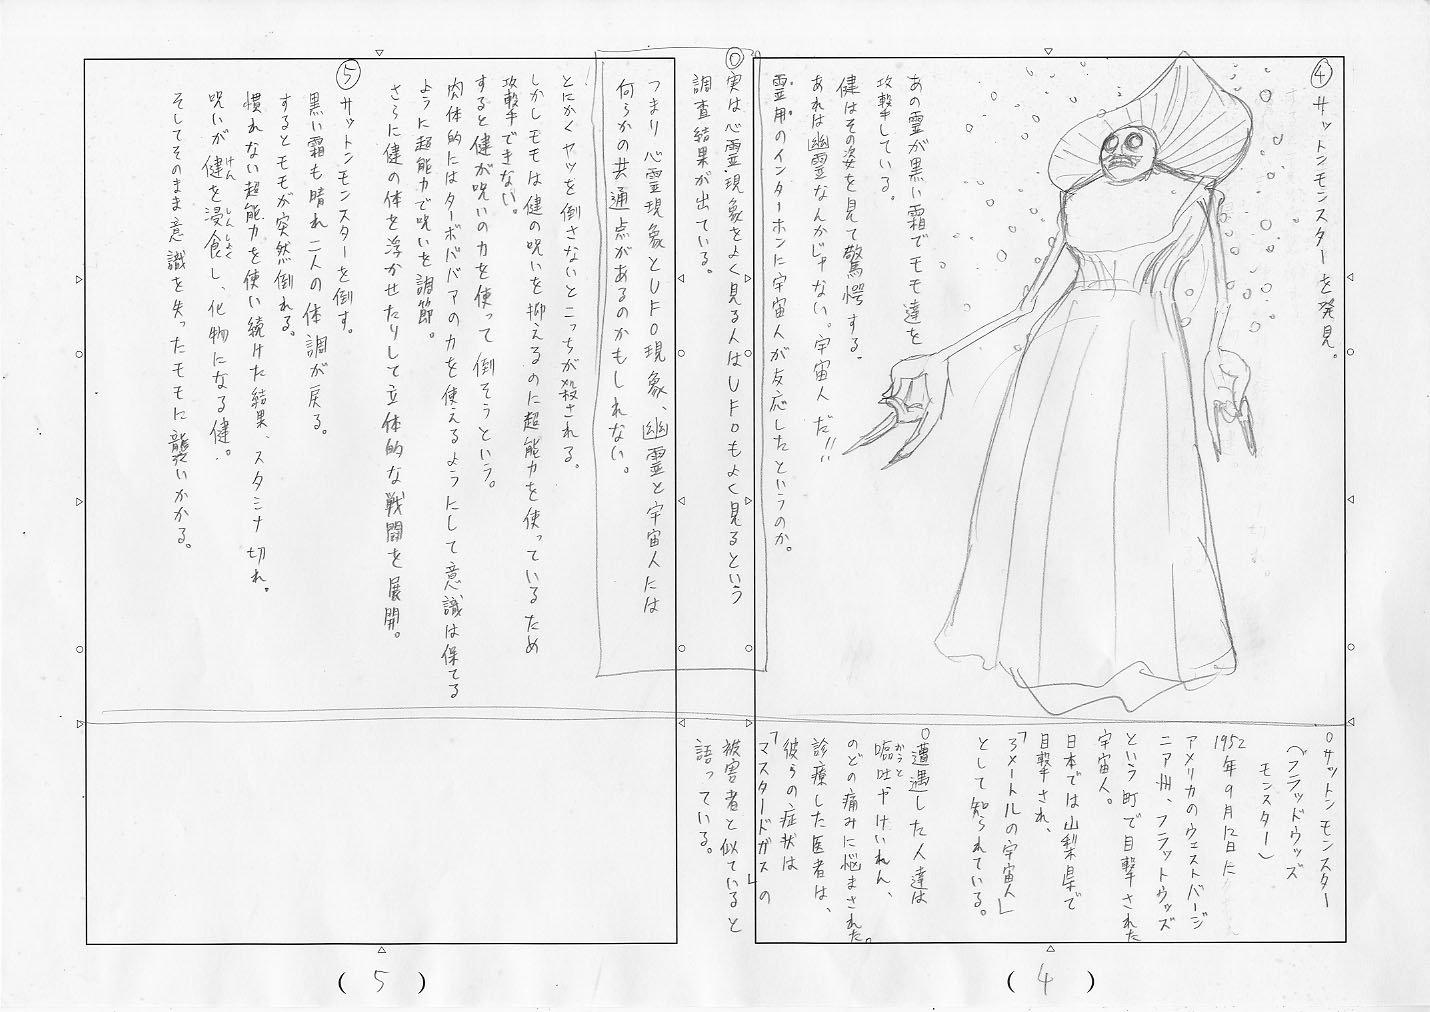 ④サットンモンスターを発見。
あの霊が黒い霜でモモ達を
攻撃している。
健はその姿を見て驚愕する。
あれは幽霊なんかじゃない。宇宙人だ!!
霊用のインターホンに宇宙人が反応したというのか。
〇実は心霊現象をよく見る人はUFOもよく見るという
調査結果が出ている。
つまり心霊現象とUFO現象、幽霊と宇宙人には
何らかの共通点があるのかもしれない。
とにかくヤツを倒さないとこっちが殺される。
しかしモモは健の呪いを抑えるのに超能力を使っているため
攻撃できない。
すると健が呪いの力を使って倒そうという。
肉体的にはターボババアの力を使えるようにして意識は保てる
ように超能力で呪いを調節。
さらに健の体を浮かせたりして立体的な戦闘を展開。
⑤サットンモンスターを倒す。
黒い霜も晴れ二人の体調が戻る。
するとモモが突然倒れる。
慣れない超能力を使い続けた結果、スタミナ切れ。
呪いが健を浸食し、化物になる健。
けん
しんしょく
そしてそのまま意識を失ったモモに襲いかかる。
〇サットンモンスター
(フラッドウッズ
モンスター)
1952年9月12日に
アメリカのウェストバージ
ニア州、フラットウッズ
という町で目撃された
宇宙人。
日本では山梨県で
目撃され、
「3メートルの宇宙人」
として知られている。
〇遭遇した人達は
嘔吐やけいれん、
おうと
のどの痛みに悩まされた。
診療した医者は、
彼らの症状は
「マスタードガスの
被害者と似ている」と
語っている。
(4)
(5)